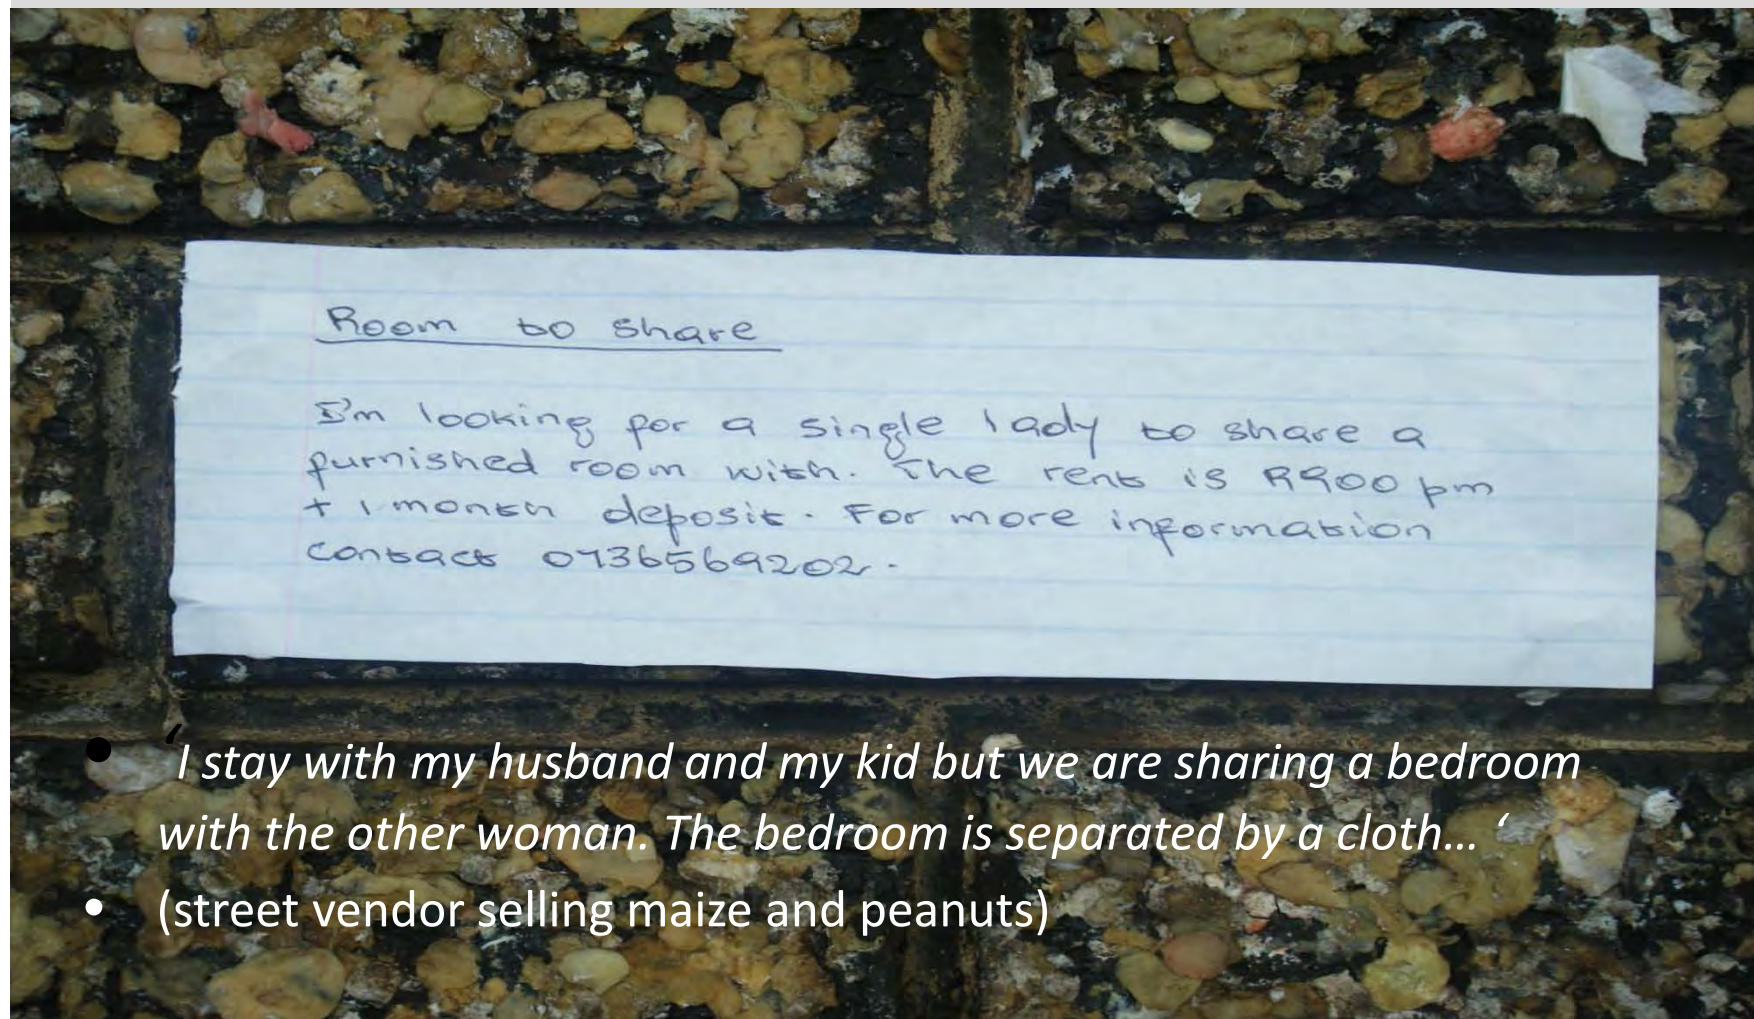 Room to share
I'm looking for a single lady to share a
furnished room with. The rent is R900 pm
+ 1 month deposit. For more information
contact 0736569202.
• 'I stay with my husband and my kid but we are sharing a bedroom
with the other woman. The bedroom is separated by a cloth… ‘
• (street vendor selling maize and peanuts)